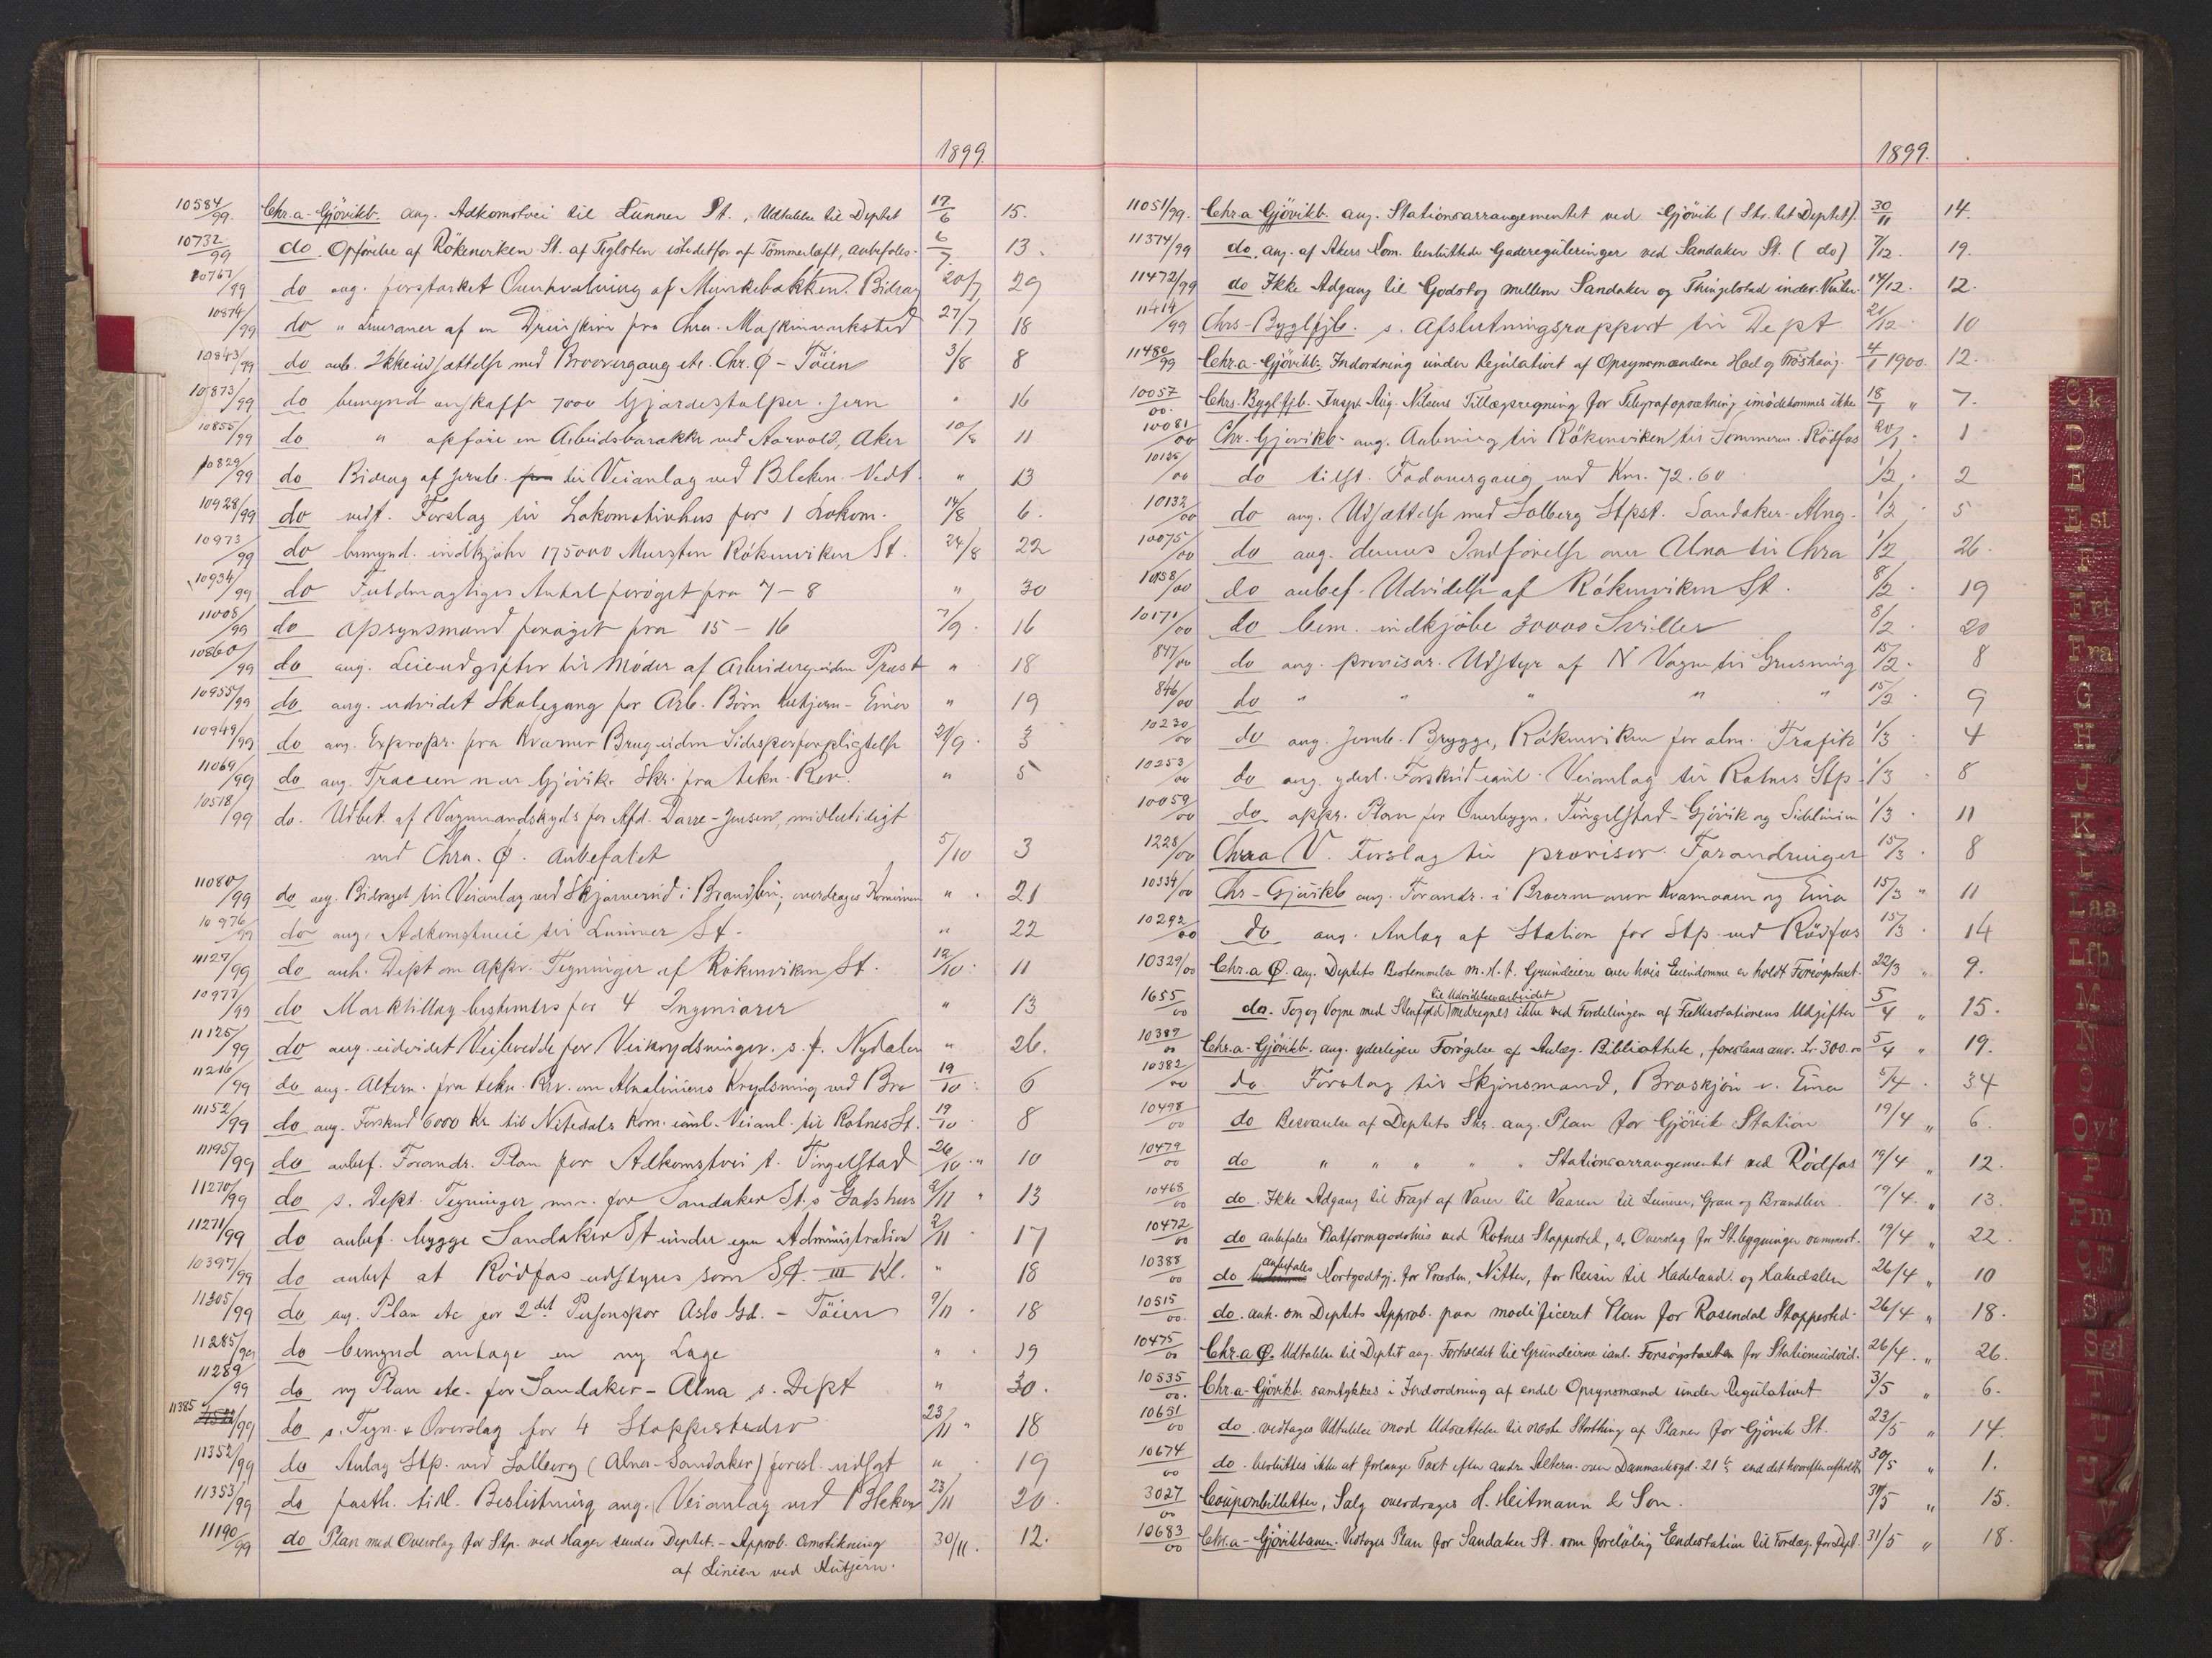 1899.
10584/99. Chr.a-Gjövikb. ang. Adkomstvei til Lunner St., Udtalelse til Deptet 17/6 15.
10732/99 do. Opförelse af Rökenviken St. af Teglsten istedetfor af Tömmerlaft, anbefales. 6/7. 13.
10767/99 do ang. forstærket Overhvælving af Munkebækken. Bidrag 20/7 29
10874/99 do " Leverance af en Dreieskive fra Chra. Maskinverksted 27/7 18
10843/99 do anb. Ikkeiværksættelse med Broovergang etc. Chr. Ø - Töien 3/8 8
10873/99 do bemynd anskaffe 7000 Gjærdestolper. Jern " 16
10855/99 do " opföre en Arbeidsbarakke ved Aarvold, Aker 10/8 11
10829/99 do Bidrag af Jernb. til Veianlæg ved Bleken. Vedt. " 13
10928/99 do vedt. Forslag til Lokomotivhus for 1 Lokom. 14/8 6.
10973/99 do bemynd. indkjöbe 175000 Mursten Rökenviken St. 24/8 22
10934/99 do Fuldmægtiges Antal foröget fra 7-8 " 30
11008/99 do Opsynsmænd foröget fra 15-16 7/9. 16
10860/99 do ang. Leieudgifter til Möder af Arbeidere uden Præst " 18
10955/99 do ang. udvidet Skolegang for Arb. Börn Kutjern - Eina " 19
10949/99 do ang. Expropr. fra Kværner Brug uden Sidesporforpligtelse 21/9. 3
11069/99 do ang. Traceen nær Gjövik. Skr. fra tekn. Rev. " 5
10518/99 do. Udbet. af Vognmandskyds for Afd. Darre-Jensen, midlertidigt
ved Chra. Ø. Anbefalet 5/10 3
11080/99 do ang. Bidraget til Veianlæg ved Skjærverud i Brandbu, overdrages Kommunen " 21
10976/99 do ang. Adkomstvei til Lunner St. " 22
11127/99 do anh. Dept om Appr. Tegninger af Rökenviken St. 12/10. 11
10977/99 do Marktillæg bestemtes for 4 Ingeniörer " 13
11125/99 do ang. udvidet Veibredde for Veikrydsninger. s. f. Nydalen " 26.
11216/99 do ang. Altern. fra tekn. Rev. om Alnaliniens Krydsning ved Bro 19/10. 6
11152/99 do ang. Forskud 6000 Kr. til Nitedals Kom. iaml. Veianl. til Rotnes St. 19/10 8
11195/99 do anbef. Forandr. Plan for Adkomstvei t. Tingelstad 26/10 " 10
11270/99 do s. Dept. Tegninger m.m. for Sandaker St.s Godshus 2/11 " 13
11271/99 do anbef. bygge Sandaker St under egen Administration 2/11 17
10397/99 do anbef at Rödfos udstyres som St. III Kl. " 18
11305/99 do ang. Plan etc for 2det Personspor Oslo Gd. - Töien 9/11. 18
11285/99 do bemynd antage en ny Læge " 19
11289/99 do ny Plan etc. for Sandaker - Alna s. Dept " 30.
11385/99 do s. Tegn. & Overslag for 4 Stoppesteder 23/11 " 18
11352/99 do Anlæg Stp. ved Solberg (Alna-Sandaker) foresl. udsat " 19
11353/99 do fasth. tidl. Beslutning ang. Veianlæg ved Bleken 23/11 20.
11190/99 do Plan med Overslag for Stp. ved Hager sendes Deptet. - Approb. Omstikning 30/11. 12.
af Linien ved Kutjern.
1899.
11051/99. Chr.a Gjövikb. ang. Stationsarrangementet ved Gjövik (Skr. til Deptet). 30/11 14.
11374/99 do. ang. af Akers Kom. besluttede Gaderegüleringer ved Sandaker St. (do) 7/12. 19.
11472/99 do Ikke Adgang til Godstog mellem Sandaker og Thingelstad inder. Vinter. 14/12. 12.
11414/99 Chrs-Byglfjb. s. Afslutningsrapport til Dept 21/12 10
11480/99 Chr.a-Gjövikb. Indordning under Regulativet af Opsynsmændene Hoel og Fröshaug. 4/1 1900. 12.
10057/00. Chrs. Byglfjb. Insp. Aug. Nilsens Tillægsregning for Telegrafopsætning imödekommes ikke 18/1 " 7.
10081/00 Chr. Gjövikb. ang. Aabning til Rökenviken til Sommeren. Rödfos 20/1. 1
10125/00 do tilst. Fodovergang ved Km. 72.60 1/2. 2
10132/00 do ang. Udsættelse med Solberg Stpst. Sandaker-Alna. 1/2. 5
10075/00 do ang. dennes Indförelse over Alna til Chra 1/2 26.
10158/00 do anbef. Udvidelse af Rökenviken St. 8/2. 19
10171/00 do bem. indkjöbe 30000 Sviller 8/2 20
847/00 do ang. provisor. Udstyr af N Vogne til Grusning 15/2. 8
846/00 do " " " " " 15/2. 9
10230/00 do ang. Jernb. Brygge, Rökenviken for alm. Trafik 1/3 4
10253/00 do ang. yderl. Forskud iaml. Veianlæg til Rotnes Stp. 1/3. 8
10059/00 do appr. Plan for Overbygn. Tingelstad-Gjövik og Sidelinien 1/3. 11
1228/00 Chra V. Forslag til provisor. Forandringer 15/3. 8
10334/00 Chr-Gjövikb ang. Forandr. i Broerne over Kvamaaen og Eina 15/3 " 11
10292/00 do ang. Anlæg af Station for Stp. ved Rödfos 15/3. 14
10329/00 Chr.a Ø. ang. Deptets Bestemmelse m.H.t. Grundeiere over hvis Eiendomme er holdt Forsögstaxt. 22/3 " 9.
1655/00 do. Tog og Vogne med Stenfyld til Udvidelsesarbeidet medregnes ikke ved Fordelingen af Fællesstationens Udgifter 5/4 " 15.
10389/00 Chr.a-Gjövikb. ang. yderligere Forögelse af Anlæg. Bibliothek, foreslaaes anv. Kr 300.00 5/4 " 19.
10382/00 do Forslag til Skjönsmænd, Broskjön v. Eina 5/4. 34
10498/00 do Besvarelse af Deptets Skr. ang. Plan for Gjövik Station 19/4 " 6.
10479/00 do " " " " " Stationsarrangementet ved Rödfos 19/4 " 12.
10468/00 do. Ikke Adgang til Fragt af Varer til Vaaren til Lunner, Gran og Brandbu. 19/4 " 13.
10472/00 do anbefales Platformgodshus ved Rotnes Stoppested, s. Overslag for St.bygninger sammest. 19/4 " 22.
10388/00 do anbefales Kostgodtgj. for Præsten, Nitter, for Reiser til Hadeland og Hakedalen 26/4 " 10
10515/00. do. anh. om Deptets Approb. paa modificeret Plan for Rosendal Stoppested. 26/4 " 18.
10475/00 Chr.a Ø. Udtalelse til Deptet ang. Forholdet til Grundeierne iaml. Forsögstaxten for Stationsudvid. 26/4. " 26.
10535/00. Chr.a-Gjövikb. samtykkes i Indordning af endel Opsynsmænd under Regulativet 3/5 " 6.
10651/00 do. vedtages Udtalelse mod Udsættelse til næste Storthing af Planer for Gjövik St. 23/5 " 14.
10674/00 do. besluttes ikke at forlange Taxt efter andre Altern. over Danmarksgd. 21 end det hvorefter afholdt 30/5 " 1.
3027/00 Couponbilletter, Salg overdrages H. Heitmann & Son. 31/5 " 15.
10683/00 Chr.a-Gjövikbanen. Vedtages Plan for Sandaker St. som foreløbig Endestation til Forelæg. for Dept. 31/5 " 18.
Ck
D
E
E st
F
Frt
Fra
G
H
J
K
L
Laa
Lfh
M
N
O
Ovf
P
Pm
Q R
S
Sgl
T
U
V